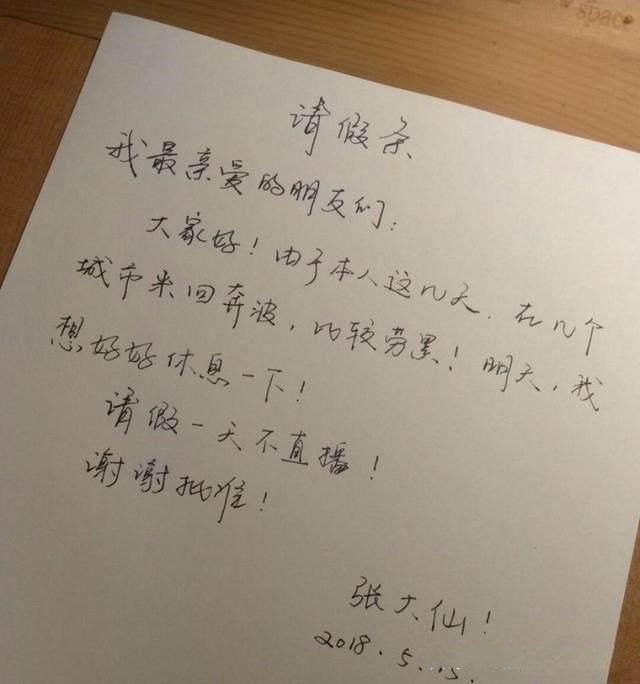 space
请假条
我最亲爱的朋友们：
大家好！由于本人这几天.在几个
城市来回奔波，比较劳累！明天，我
想好好休息一下！
请假一天不直播！
谢谢批准！
张大仙！
2018.5.15.